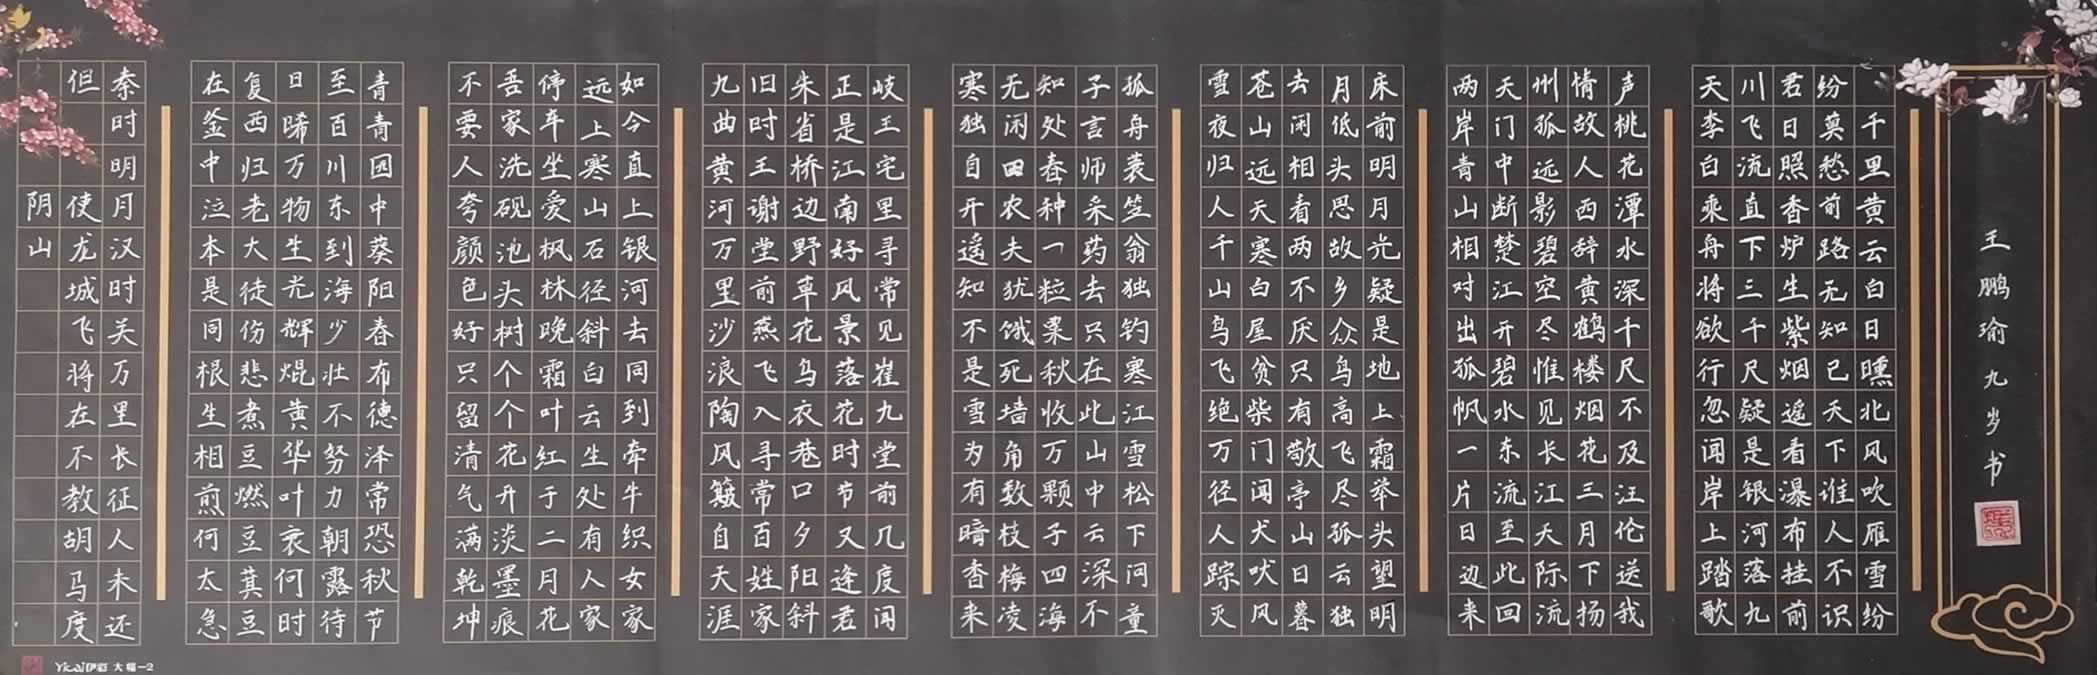 王鹏瑜九岁书
千里黄云白日曛北风吹雁雪纷
纷莫愁前路无知已天下谁人不识
君日照香炉生紫烟遥看瀑布挂前
川飞流直下三千尺疑是银河落九
天李白乘舟将欲行忽闻岸上踏歌
声桃花潭水深千尺不及汪伦送我
情故人西辞黄鹤楼烟花三月下扬
州孤远影碧空尽惟见长江天际流
天门中断楚江开碧水东流至此回
两岸青山相对出孤帆一片日边来
床前明月光疑是地上霜举头望明
月低头思故乡众鸟高飞尽孤云独
去闲相看两不厌只有敬亭山日暮
苍山远天寒白屋贫柴门闻犬吠风
雪夜归人千山鸟飞绝万径人踪灭
孤舟蓑笠翁独钓寒江雪松下问童
子言师采药去只在此山中云深不
知处春种一粒粟秋收万颗子四海
无闲田农夫犹饿死墙角数枝梅凌
寒独自开遥知不是雪为有暗香来
岐王宅里寻常见崔九堂前几度闻
正是江南好风景落花时节又逢君
朱省桥边野草花乌衣巷口夕阳斜
旧时王谢堂前燕飞入寻常百姓家
九曲黄河万里沙浪陶风簸自天涯
如今直上银河去同到牵牛织女家
远上寒山石径斜白云生处有人家
停车坐爱枫林晚霜叶红于二月花
吾家洗砚池头树个个花开淡墨痕
不要人夸颜色好只留清气满乾坤
青青园中葵阳春布德泽常恐秋节
至百川东到海少壮不努力朝露待
日晞万物生光辉焜黄华叶衰何时
复西归老大徒伤悲煮豆燃豆萁豆
在釜中泣本是同根生相煎何太急
秦时明月汉时关万里长征人未还
但使龙城飞将在不教胡马度
阴山
Yicai伊彩 大幅-2